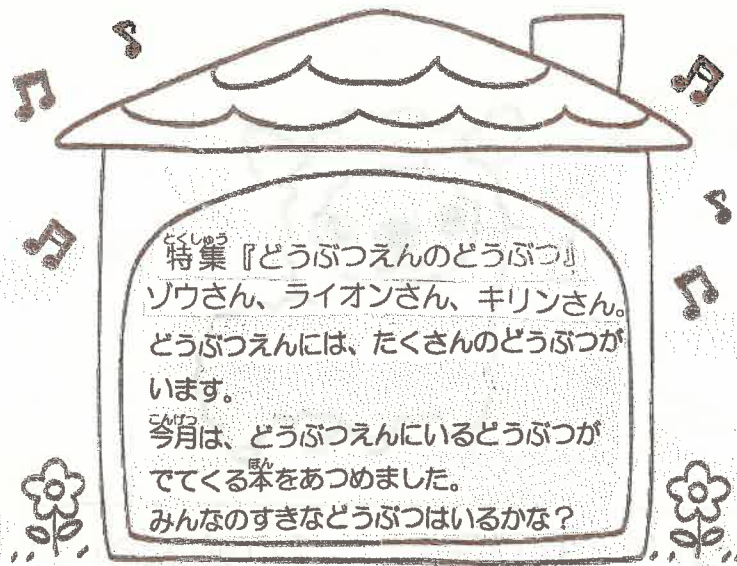 特集『どうぶつえんのどうぶつ』
ゾウさん、ライオンさん、キリンさん。
どうぶつえんには、たくさんのどうぶつが
います。
今月は、どうぶつえんにいるどうぶつが
でてくる本をあつめました。
みんなのすきなどうぶつはいるかな？